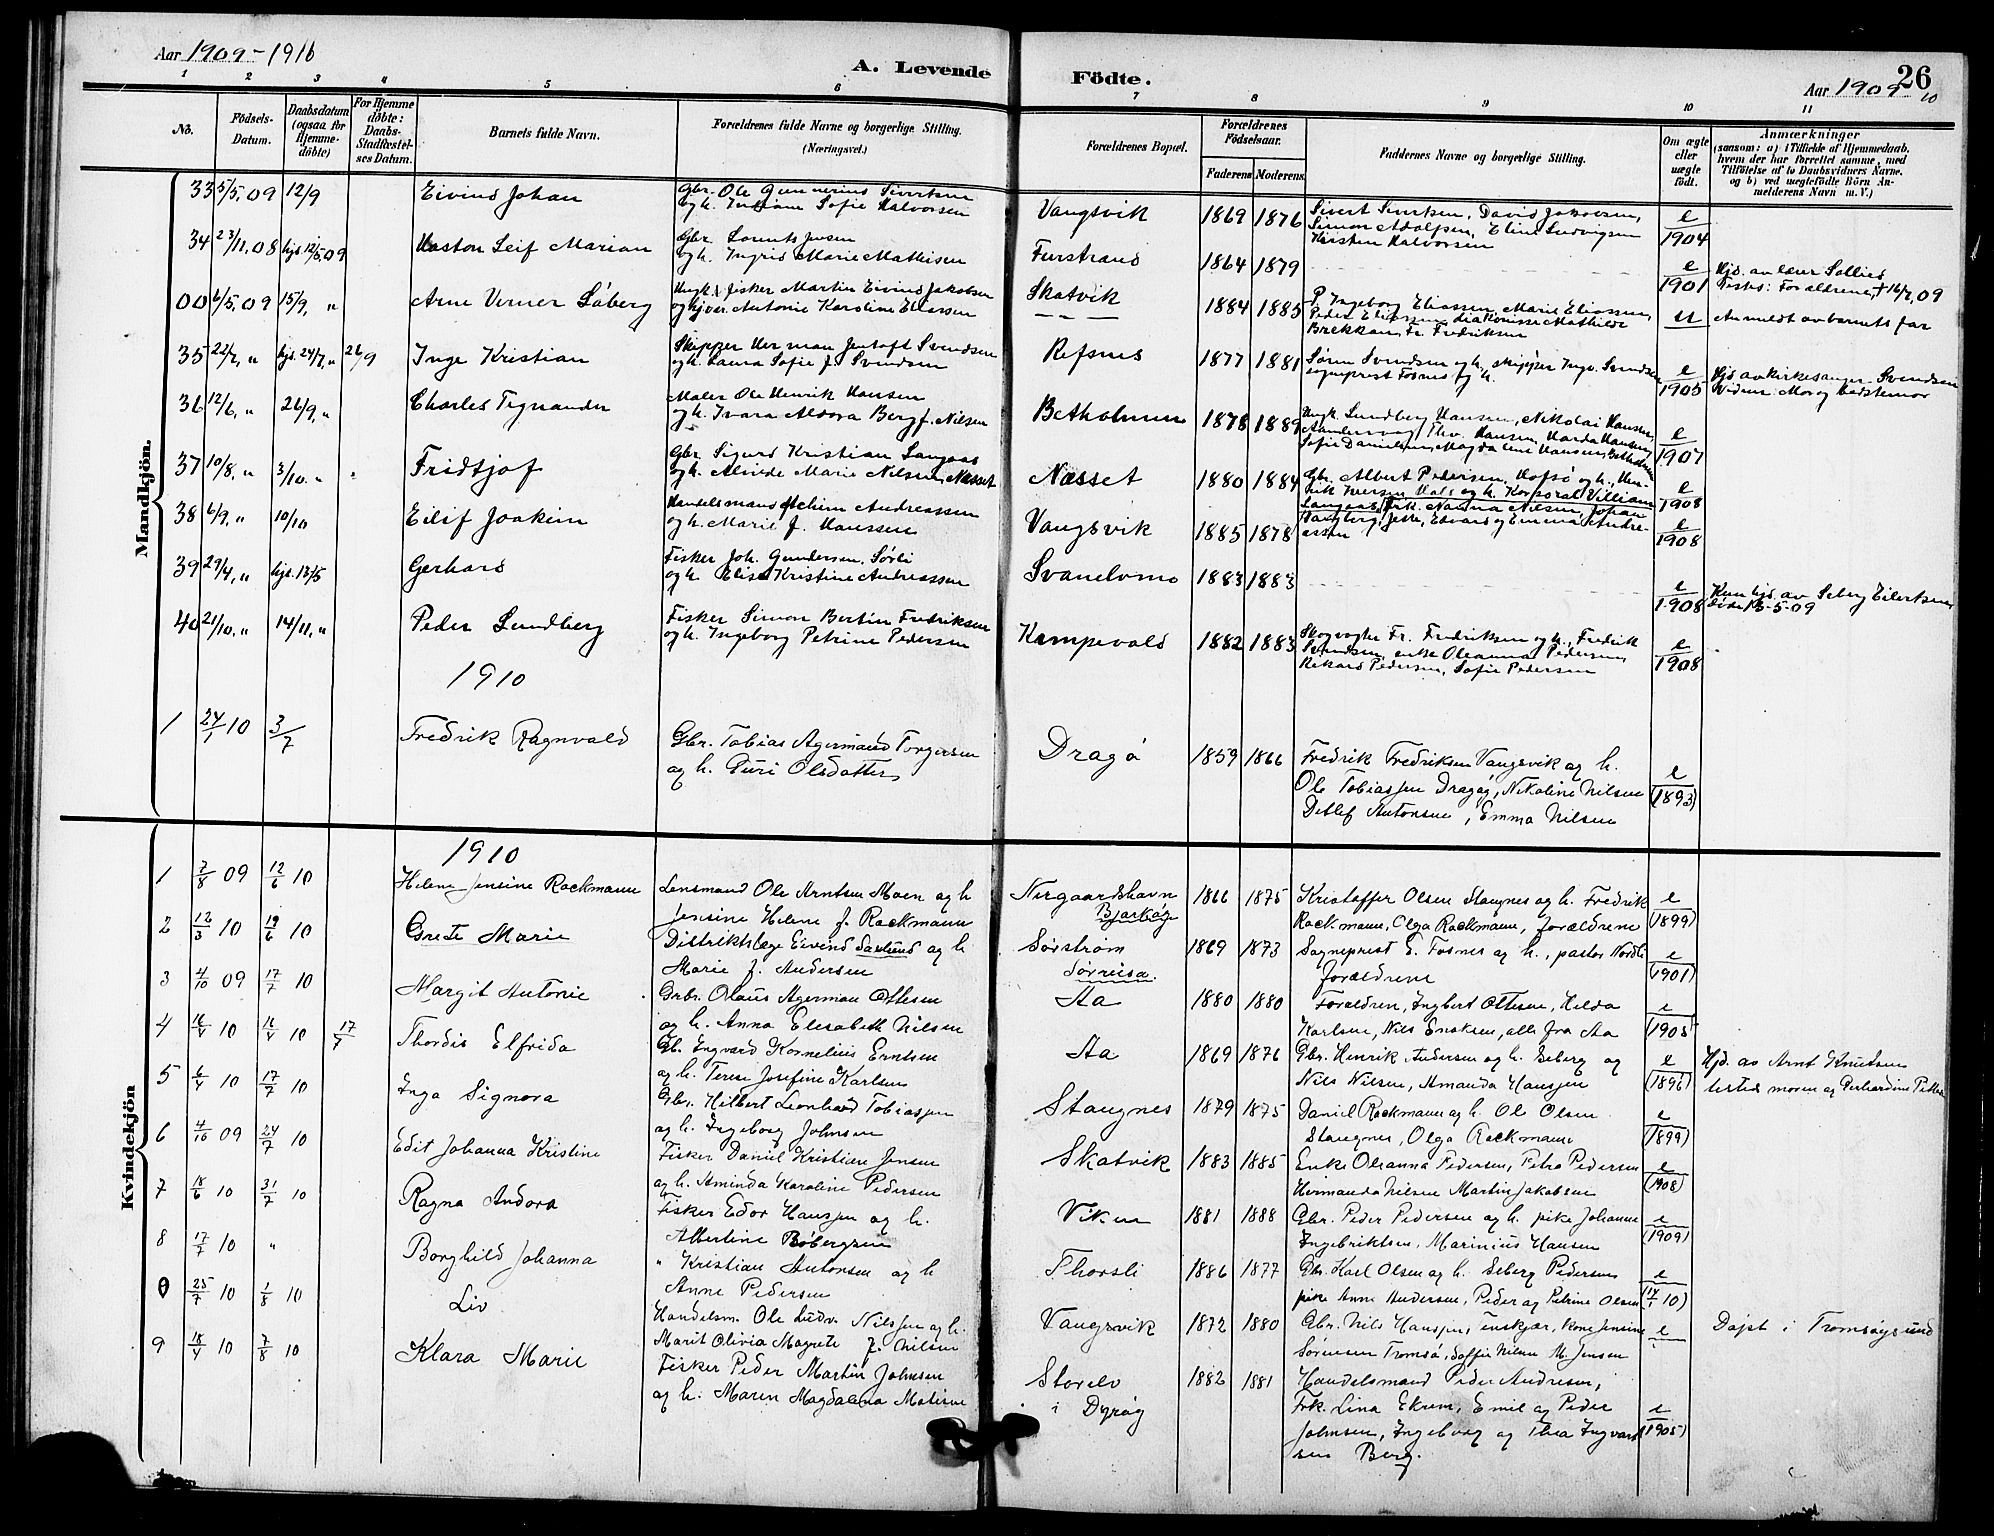 Aar 1909-1916
A. Levende Födte.
Aar 1909 10
26
1 2 3 4 5 6 7 8 9 10 11
No.
Födsels-Datum.
Daabsdatum (ogsaa for Hjemme-döbte)
For Hjemme döbte: Daabs-Stadfæstel-ses Datum.
Barnets fulde Navn.
Forældrenes fulde Navne og borgerlige Stilling.
(Næringsvei.)
Forældrenes Bopæl.
Forældrenes Födselsaar.
Faderens Moderens
Faddernes Navne og borgerlige Stilling.
Om ægte eller uægte födt.
Anmærkninger
(saasom: a) i Tilfælde af Hjemmedaab, hvem der har forrettet samme, med Tilföielse af to Daabsvidners Navne. og b) ved uægtefödte Börn An-melderens Navn m. V.)
Mandkjön.
33 5/5, 09 12/9 Eivind Johan Gbr. Ole Gunnerius Sivertsen
og h. Sofie Halvorsen
Vangsvik 1869 1876 Sivert Sivertsen, David Jakobsen,
Simon Adolfsen, Eline Ludvigsen
Kristen Halvorsen
e 1904
34 23/11, 08 hjd. 12/5, 09 Haston Leif Marian Gbr. Lorents Jensen
og h. Ingrid Marie Mathisen
Furstrand 1864 1879 e 1901
Hjd. av lærer Sollied
Testes: Forældrene, + 16/7, 09
00 6/5, 09 15/9, " Arne Verner Söberg Ungk. Fisker Martin Eivind Jakobsen
og Antonie Karoline Eliassen
Skatvik 1884 1885 P. Ingeborg Eliassen, Marie Eliassen,
Peder Eliassen, diakonisse Mathilde
Brekkan, Fr. Fredriksen
u Anmeldt av barnets far
35 22/7, " hjd. 24/7, " 26/9 Inge Kristian Skipper Herman Jentoft Svendsen
og h. Laura Sofie f. Svendsen
Refsnes 1877 1881 Søren Svendsen og h, skipper Ingv. Svendsen
sogneprest Fosnes og h.
e 1905
Hjd. av kirkesanger Svendsen
Vidner: Mor og bedstemor
36 12/6, " 26/9, " Charles Tignander Maler Ole Henrik Hansen
og h. Ivara Aldora Berg f. Nilsen
Betholmen 1878 1889 Ungk. Lundberg Hansen, Nikolai Hansen,
Thv. Hansen, Harda Hansen,
Sofie Danielsen, Magdalene Hansen, Betholmen
e 1907
37 10/8, " 3/10, " Fridtjof Gbr. Sigurd Kristian Langaas
og h. Alvilde Marie Nilsen, Næsset
Næsset 1880 1884 Gbr. Albert Pedersen Hofsö og h., Hen-
rik Iversen Hals og h. Korporal Villiam
Langaas, frk. Nanna Nilsen, Johan
e 1908
38 6/9, " 10/10 Eilif Joakim Handelsmand Achim Andreassen
og h. Marie f. Hanssen
Vangsvik 1885 1878 Vangberg, Edvard og Emma Andre-
assen
e 1908
39 29/4, " hjd. 13/5 Gerhard Fisker Joh. Gundersen Sörli
og h. Elise Kristine Andreassen
Svanelvmo 1883 1883 e 1908
Kun hjd. av Seberg Eilertsen,
döde 15-5-09
40 21/10, " 14/11, " Peder Lundberg Fisker Simon Bertin Fredriksen
og h. Ingeborg Petrine Pedersen
Kampevold 1882 1883 Skogvogter Fr. Fredriksen og h., Fredrik
Svendsen, enke Oleanna Pedersen,
Rikard Pedersen, Sofie Pedersen
e 1908
1910
1 24/1 10 3/7 Fredrik Ragnvald Gbr. Tobias Agermand Torgersen
og h. Guri Olsdatter
Dragö 1859 1866 Fredrik Fredriksen Vangsvik og h.
Ole Tobiassen Dragöy, Nikoline Nilsen
Detlef Antonsen, Emma Nilsen
e (1893)
Kvindekjön
1910
1 7/8 09 12/6 10 Helene Jensine Rackmann Lensmand Ole Arntsen Moen og h
Jensine Helene f. Rackmann
Nergaardshavn
Bjarköy
1866 1875 Kristoffer Olsen Stangnes og h. Fredrik
Rackmann, Olga Rackmann, forældrene
e (1899)
2 12/3 10 19/6 10 Grete Marie Distriktslæge Eivind Saxlund og h
Marie f. Andersen
Sørstrøm
Sørreisa.
1869 1873 Sogneprest E. Fosnes og h., pastor Nordli
forældrene
e (1901)
3 4/10 09 17/7 10 Margit Antonie Gbr. Olaus Agerman Ottesen
og h. Anna Elesabeth Nilsen
Aa 1880 1880 Forældren, Ingbert Ottesen, Hilda
Karlsen, Nils Enoksen, alle fra Aa
e 1905
4 16/4 10 16/4 10 17/7 Thordis Elfrida Gb. Ingvard Kornelius Erntsen
og h. Terese Josefine Karlsen
Aa 1869 1876 Gbr. Henrik Andersen og h. Seberg og
Nils Nilsen, Amanda Hanssen
e (1896)
Hjd. av Arnt Knudtsen
testes moren og Perhardine Petter
5 6/4 10 17/7 10 Inga Signora Gbr. Hilbert Leonhard Tobiassen
og h. Ingeborg Johnsen
Stangnes 1879 1875 Daniel Rackmann og h. Ole Olsen
Stangnes, Olga Rackmann
e (1899)
6 4/10 09 24/7 10 Edit Johanna Kristine Fisker Daniel Kristian Jensen
og h. Aminda Karoline Pedersen
Skatvik 1883 1885 Enke Oleanna Pedersen, Petra Pedersen
Hermanda Nilsen Martin Jakobsen
e (1908)
7 18/6 10 31/7 10 Ragna Andora Fisker Edor Hanssen og h.
Albertine Böbergsen
Viken 1881 1888 Gbr. Peder Pedersen og h. pike Johanne
Ingebriktsen, Marinius Hansen
e (1909)
8 17/7 10 " Borghild Johanna " Kristian Antonsen og h
Anne Pedersen
Thorsli 1886 1877 Gbr. Karl Olsen og h. Seberg Pedersen
pike Anne Andersen, Peder og Petrine Olsen
e (14/1 10)
0 25/7 10 1/8 10 Liv Handelsm. Ole Ludv. Nilssen og h.
Marit Olivia Magrete f. Nilsen
Vangsvik 1872 1880 Gbr. Nils Hanssen, Tenskjær, kone Jensine
Sørensen Tromsö, Soffie Nilsen M. Jensen
e Døpt i Tromsøysund
9 18/4 10 7/8 10 Klara Marie Fisker Peder Martin Johnsen
og h. Maren Magdalena Matisen
Storelv
i Dyröy
1882 1881 Handelsmand Peder Andresen,
Frk. Lina Ekrem, Emil og Peder
Johnsen, Ingeborg og Thea Ingvart
sen Berg.
e (1905)